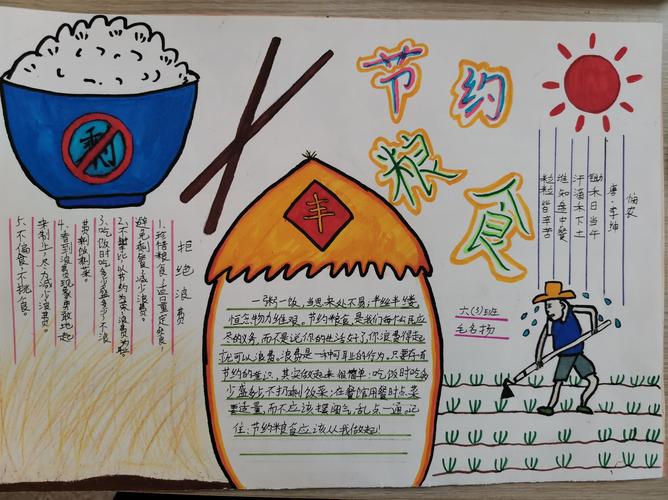 节约
粮食
剩
拒绝浪费
1、珍惜粮食,适量定食,
避免剩餐,减少浪费。
2、不攀比,以节约为荣,浪费为耻
3、吃饭时吃多少盛多少,不浪
费剩饭剩菜。
4、看到浪费现象勇敢地起
来制止,尽力减少浪费。
5、不偏食,不挑食。
丰
一粥一饭,当思来处不易,半丝半缕,
恒念物力维艰。节约粮食是我们每个公民应
尽的义务,而不是说你的生活好了你浪费得起
就可以浪费。浪费是一种可耻的行为。只要存有
节约的意识,其实做起来很简单:吃饭时吃多
少盛多少不扔剩饭菜;在餐馆用餐时点菜
要适量,而不应该摆阔气,乱点一通。记
住:节约粮食应该从我做起!
悯农
唐·李绅
锄禾日当午
汗滴禾下土
谁知盘中餐
粒粒皆辛苦
六(3)班
毛名扬